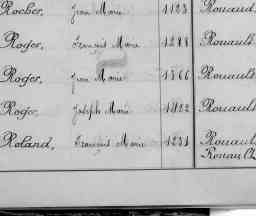 Rocher, Jean Marie 1123 Rouaud
Roger, François Marie 1288 Rouault
Roger, Jean Marie 1566 Rouault
Roger, Joseph Marie 1422 Rouault
Roland, François Marie 1231 Rouault